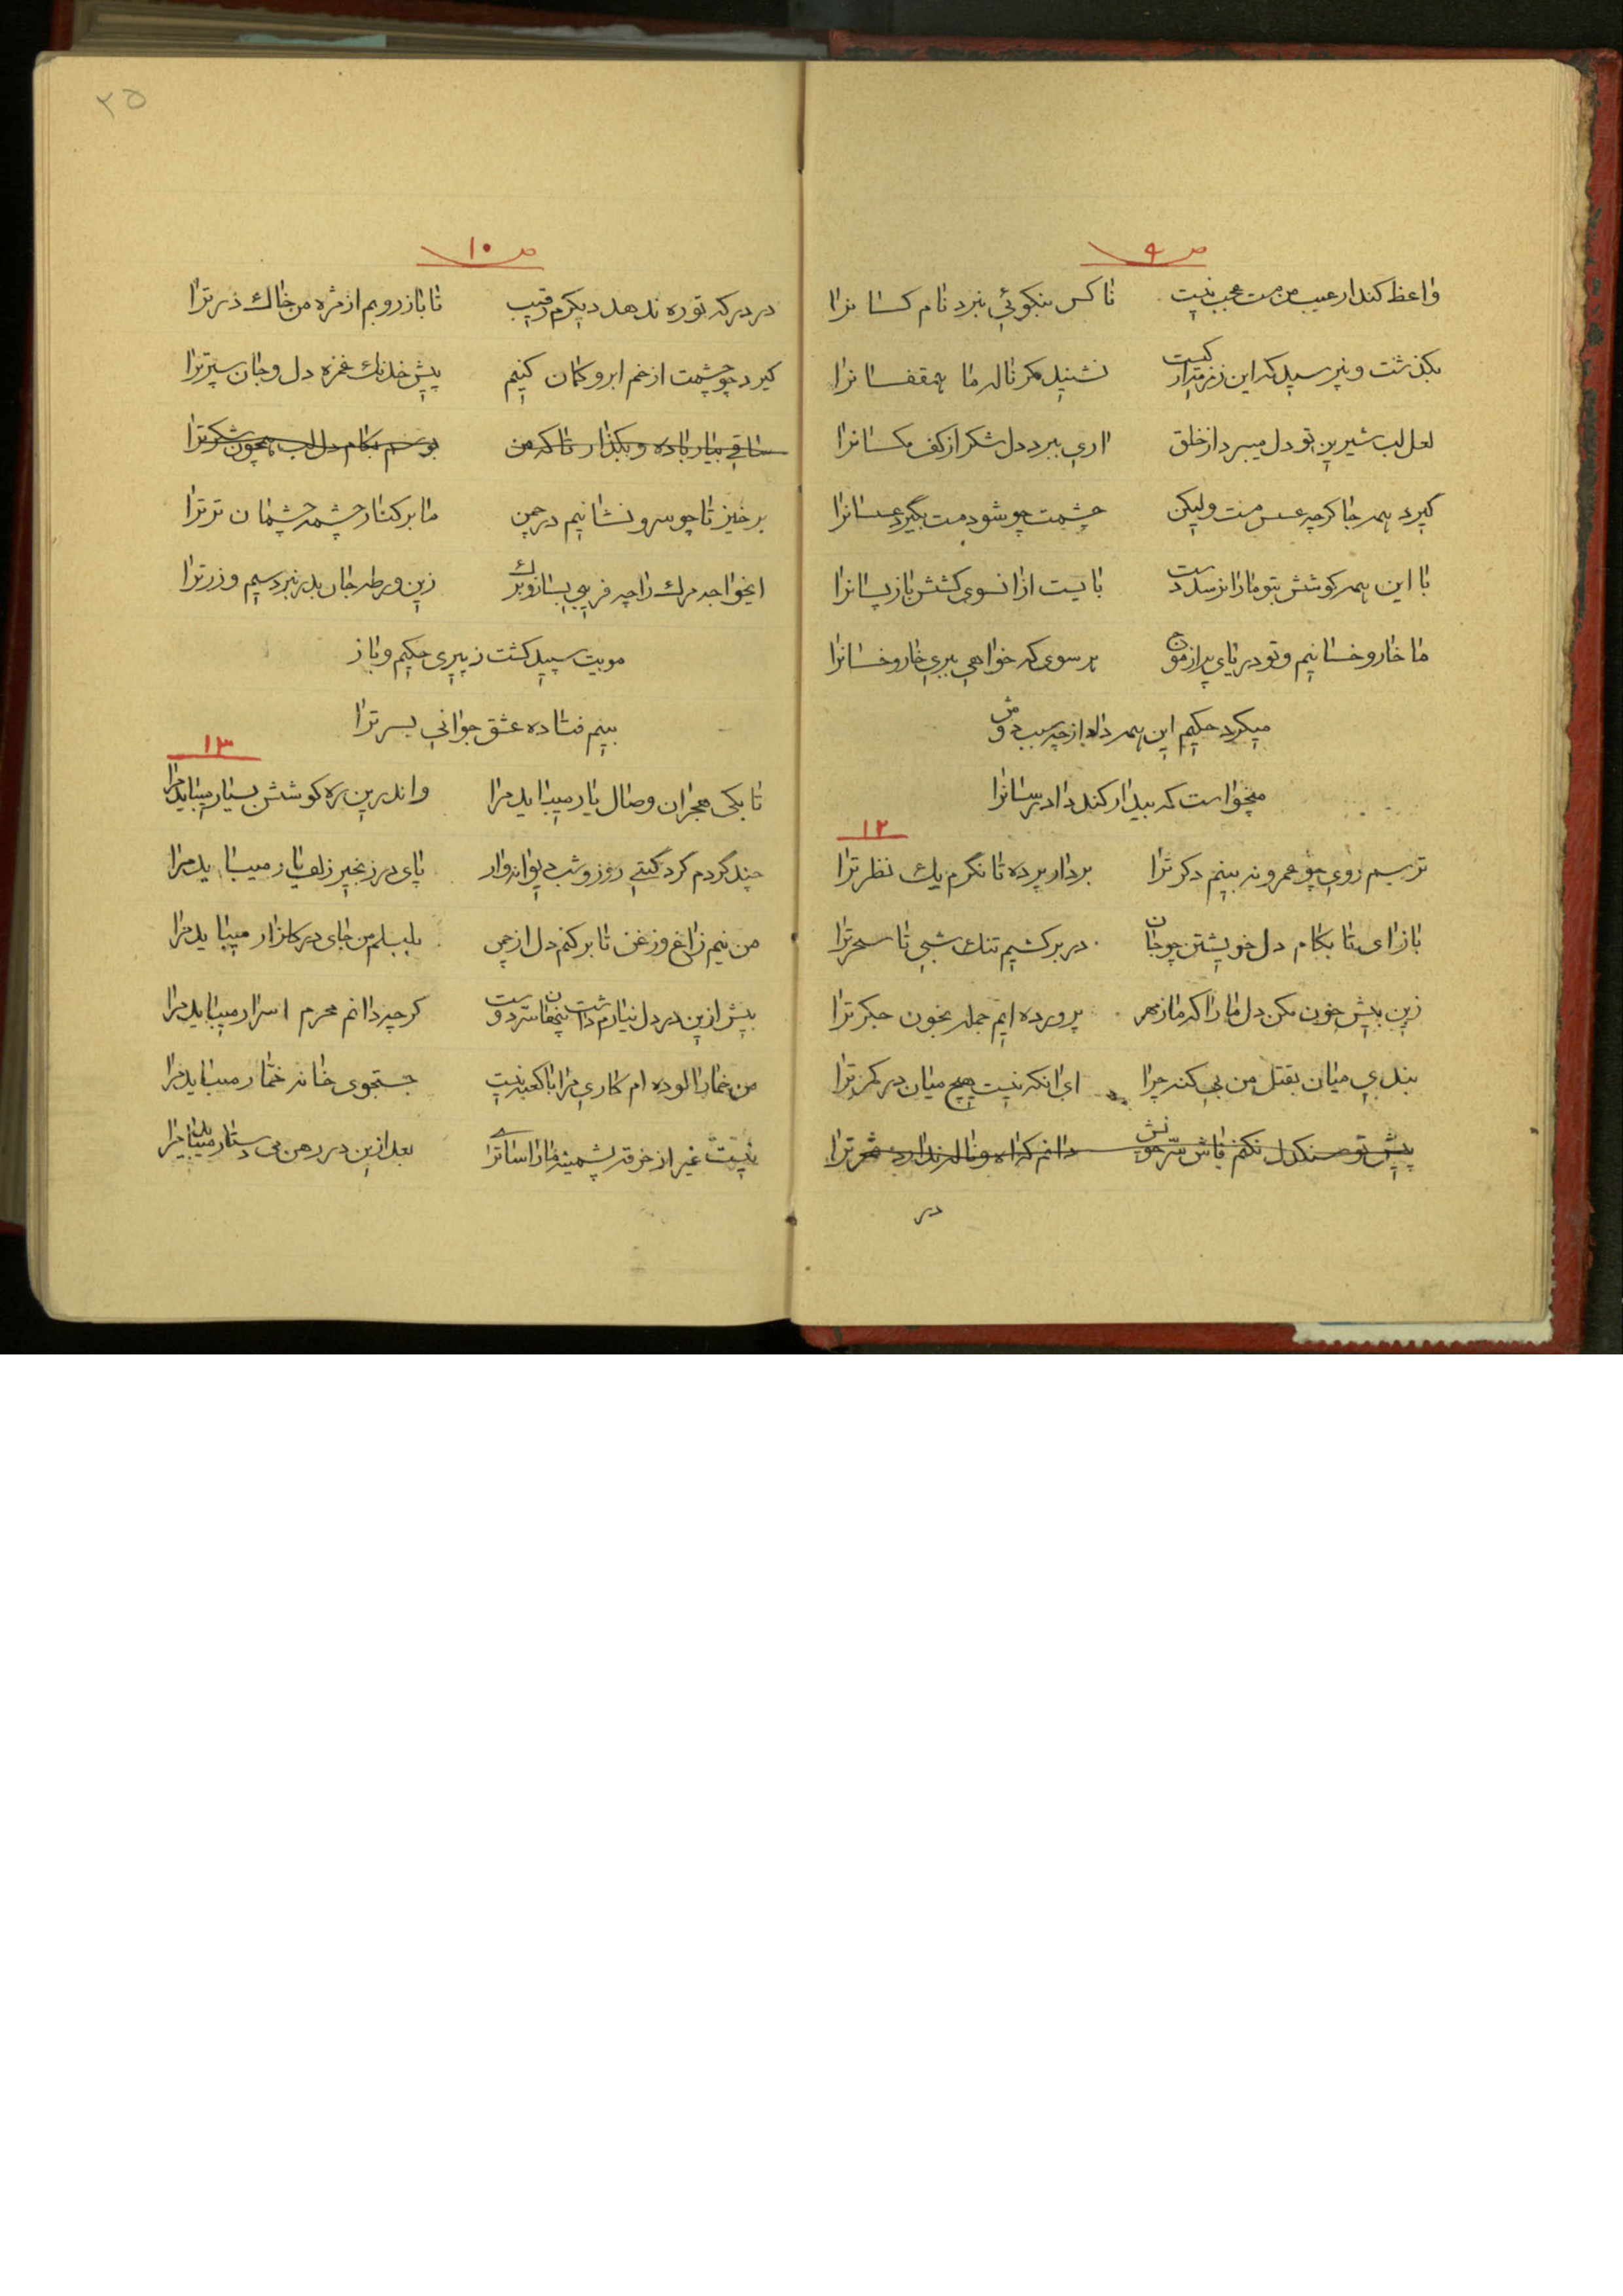 ص ۹
واعظ کند ار عیب من مست عجب نیست تا کس بنکوئی نبرد نام کسانرا
بکذشت و نپرسید که این زمزمه از کیست نشنید مکر ناله ما همقفسانرا
لعل لب شیرین تو دل میبرد از خلق اری ببرد دل شکر از کف مکسانرا
کیرد همه جا کرچه عسس مست ولیکن چشمت چو شود مست بگیرد عسسانرا
با این همه کوشش بتو ما را نرسد دست بایست از انسوی کششی باز پسانرا
ما خار و خسانیم و تو دریای پر از موج هر سوی که خواهی ببری خار و خسانرا
میکرد حکیم این همه داد از چه سبب دوش
میخواست که بیدار کند دادرسانرا
۱۲
ترسم روی چو عمر و نه بینم دکر ترا بردار پرده تا نکرم یك نظر ترا
بازای تا بکام دل خویشتن چو جان در بر کشیم تنك شبی تا سحر ترا
زین بیش خون مکن دل ما را که ما ز مهر پرورده ایم جمله بخون جکر ترا
بندی میان بقتل من بی کنه چرا ای انکه نیست هیچ میان در کمر ترا
پیش تو سنکدل نکنم فاش سر خویش دانم که اه و ناله ندارد ثمر ترا
در
۲۵
ص ۱۰
در درکه تو ره ندهد دیکرم رقیب تا باز روبم از مژه من خاك در ترا
کیرد چو چشمت از خم ابرو کمان کنیم پیش خدنك غمزه دل و جان سپر ترا
ساقی بیار باده و بکذار تا که من بوسم بکام دل لب همچون شکر ترا
برخیز تا چو سرو نشانیم در چمن ما بر کنار چشمه چشمان تر ترا
ایخواجه مرك را چه فریبی بساز و برك زین ورطه جان بدر نبرد سیم و زر ترا
مویت سپید کشت ز پیری حکیم و باز
بینم فتاده عشق جوانی بسر ترا
۱۳
تا بکی هجران وصال یار میباید مرا واندرین ره کوشش بسیار میباید مرا
چند گردم کرد کیتی روز و شب دیوانه وار پای در زنجیر زلف یار میباید مرا
من نیم زاغ و زغن تا بر کنم دل از چمن بلبلم من جای در کلزار میباید مرا
بیش ازین در دل نیارم داشت پنهان سر دوست کرچه دانم محرم اسرار میباید مرا
من خمار الوده ام کاری مرا با کعبه نیست جستجوی خانه خمار میباید مرا
نیست غیر از خرقه پشمینه ما را ساترا بعد ازین در رهن می دستار میباید مرا